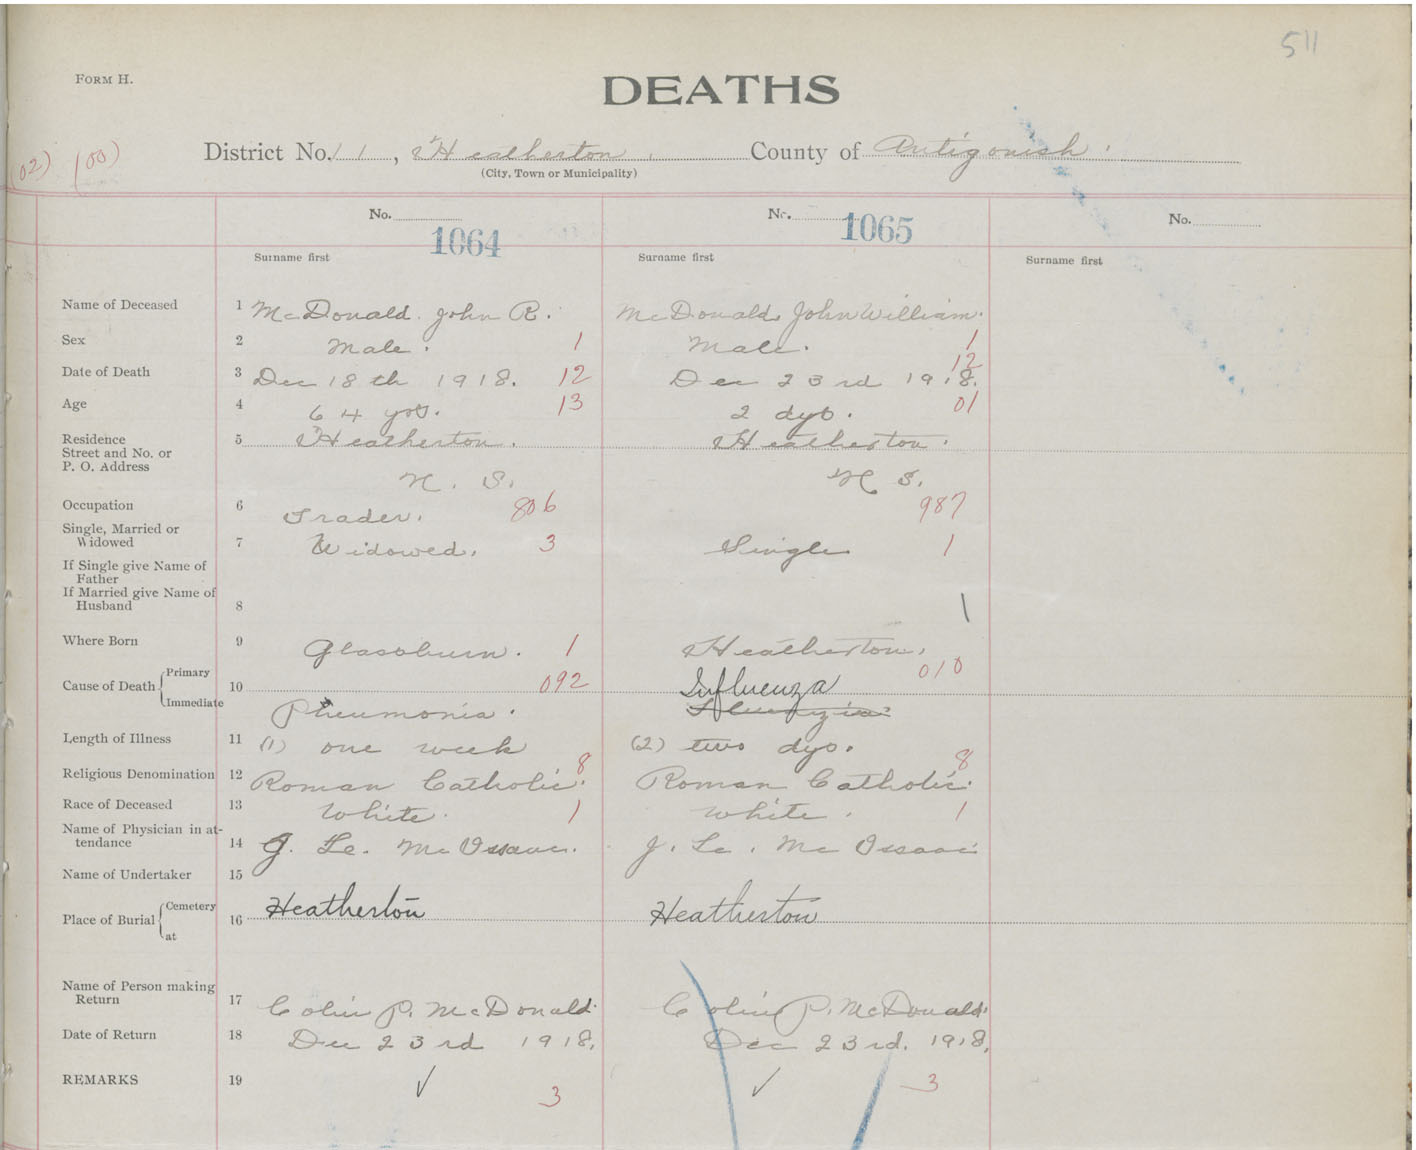 511
FORM H.
DEATHS
(02) (00) District No. 11, Heatherton. County of Antigonish.
(City, Town or Municipality)
No. 1064 No. 1065 No.
Surname first Surname first Surname first
Name of Deceased 1 McDonald John R. McDonald, John William.
Sex 2 Male. 1 Male. 1
Date of Death 3 Dec 18th 1918. 12 Dec 23rd 1918. 12
Age 4 64 yrs. 13 2 dys. 01
Residence 5 Heatherton. Heatherton.
Street and No. or
P. O. Address N. S. N S.
Occupation 6 Trader. 806 987
Single, Married or
Widowed 7 Widowed. 3 Single 1
If Single give Name of
Father
If Married give Name of
Husband 8 1
Where Born 9 Glassburn. 1 Heatherton.
Cause of Death Primary 10 092 Influenza 010
Immediate Pneumonia.
Length of Illness 11 (1) one week (2) two dys.
Religious Denomination 12 Roman Catholic. 8 Roman Catholic. 8
Race of Deceased 13 White. 1 White. 1
Name of Physician in at-
tendance 14 J. Le. McIssaac. J. Le. McIssaac
Name of Undertaker 15
Place of Burial Cemetery 16 Heatherton Heatherton
at
Name of Person making
Return 17 Colin P. McDonald. Colin P. McDonald.
Date of Return 18 Dec 23rd 1918. Dec 23rd. 1918.
REMARKS 19 ✓ 3 ✓ 3